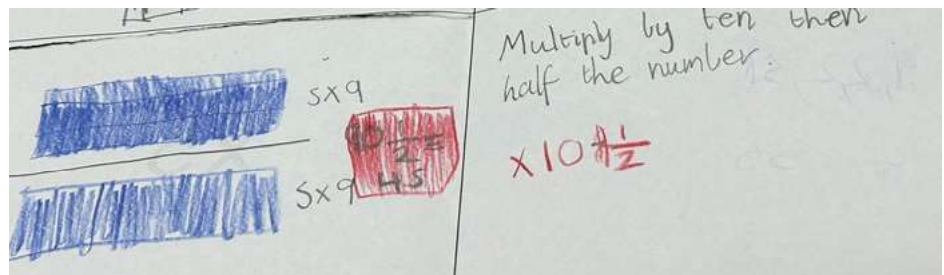 5x9
90 1/2 =
45
5x9
Multiply by ten then
half the number.
x10 1/2